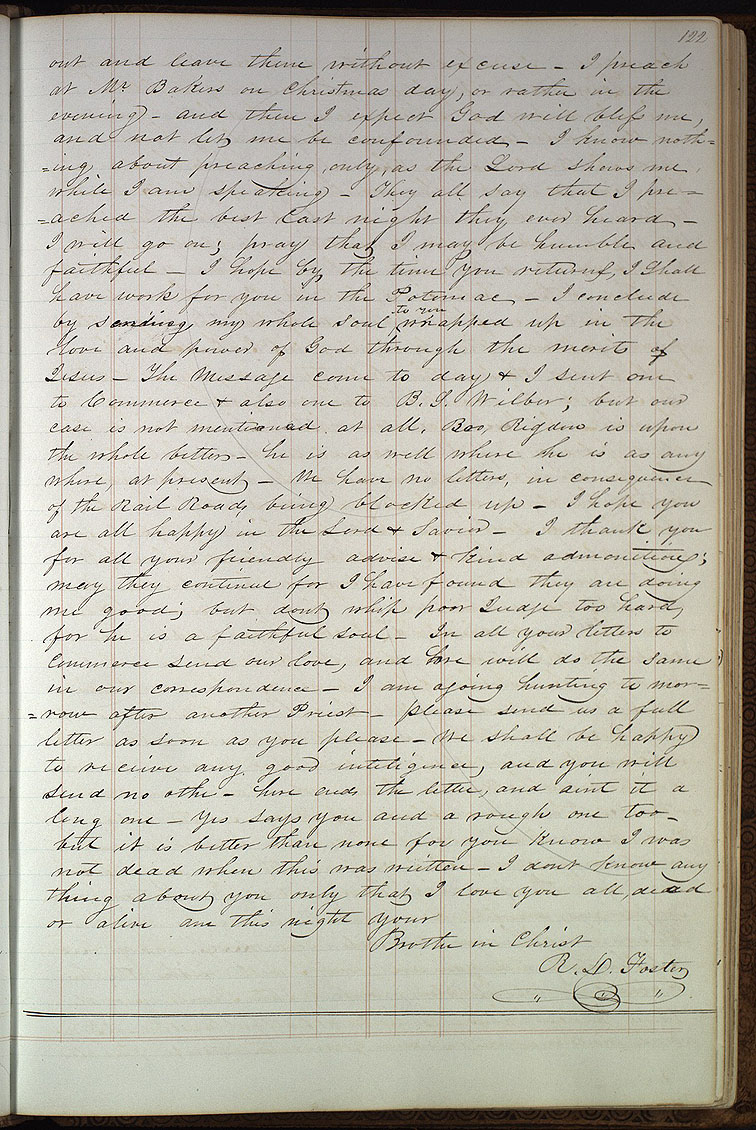 122
out and leave them without excuse — I preach
at Mr Bakers on christmas day, or rather in the
evening — and then I expect God will bless me,
and not let me be confounded — I know noth=
=ing about preaching, only, as the Lord shows me,
while I am speaking — They all say that I pre=
=ached the best last night they ever heard —
I will go on; pray that I may be humble and
faithful — I hope by the time you return, I shall
have work for you in the Potomac — I conclude
by sending my whole soul to you wrapped up in the
love and power of God through the merits of
Jesus — The Message come to day & I sent one
to Commerce & also one to B. S. Wilber; but our
case is not mentioned at all. Bro, Rigdon is upon
the whole better — he is as well where he is as any
where, at present — We have no letters, in consequence
of the Rail Roads being blocked up — I hope you
are all happy in the Lord & Savior — I thank you
for all your friendly advise & kind admonitions;
may they continue for I have found they are doing
me good; but dont whip poor Judge too hard,
for he is a faithful soul — In all your letters to
Commerce send our love, and we will do the same
in our correspondence — I am agoing hunting to mor=
=row after another Priest — please send us a full
letter as soon as you please — We shall be happy
to receive any good inteligence, and you will
send no othe — here ends the letter, and aint it a
long one — Yes says you and a rough one too —
but it is better than none for you know I was
not dead when this was written — I dont know any
thing about you only that I love you all, dead
or alive am this night your
Brothe in Christ
R. D. Foster